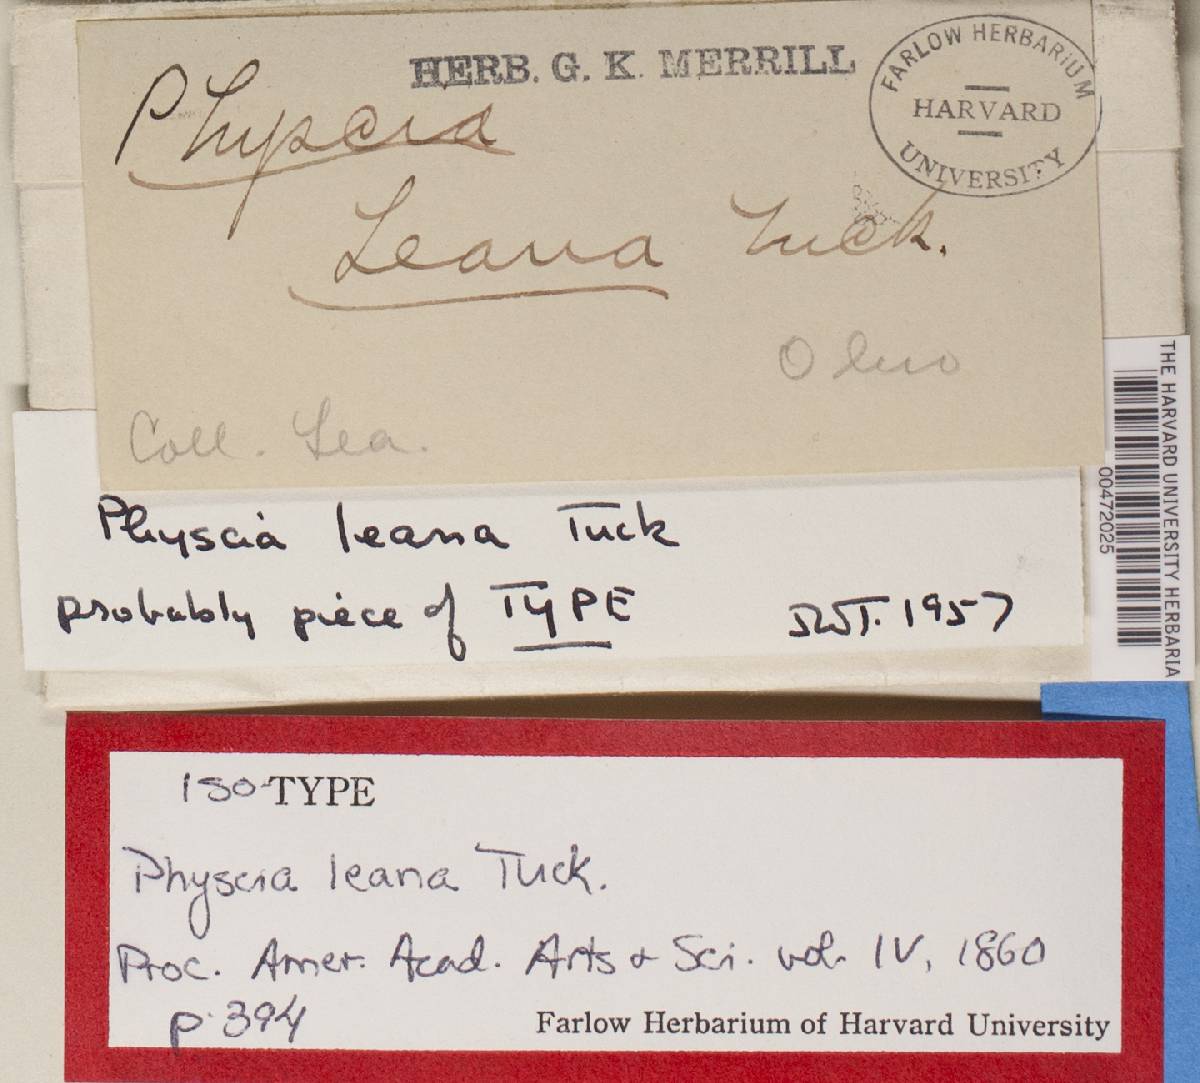 HERB. G. K. MERRILL
FARLOW HERBARIUM
HARVARD
UNIVERSITY
Physcia
Leana Tuck.
Ohio
Coll. Lea.
THE HARVARD UNIVERSITY HERBARIA
00472025
Physcia leana Tuck
probably piece of TYPE
JWT. 1957
Iso-TYPE
Physcia leana Tuck.
Proc. Amer. Acad. Arts & Sci. vol. IV, 1860
p. 394
Farlow Herbarium of Harvard University